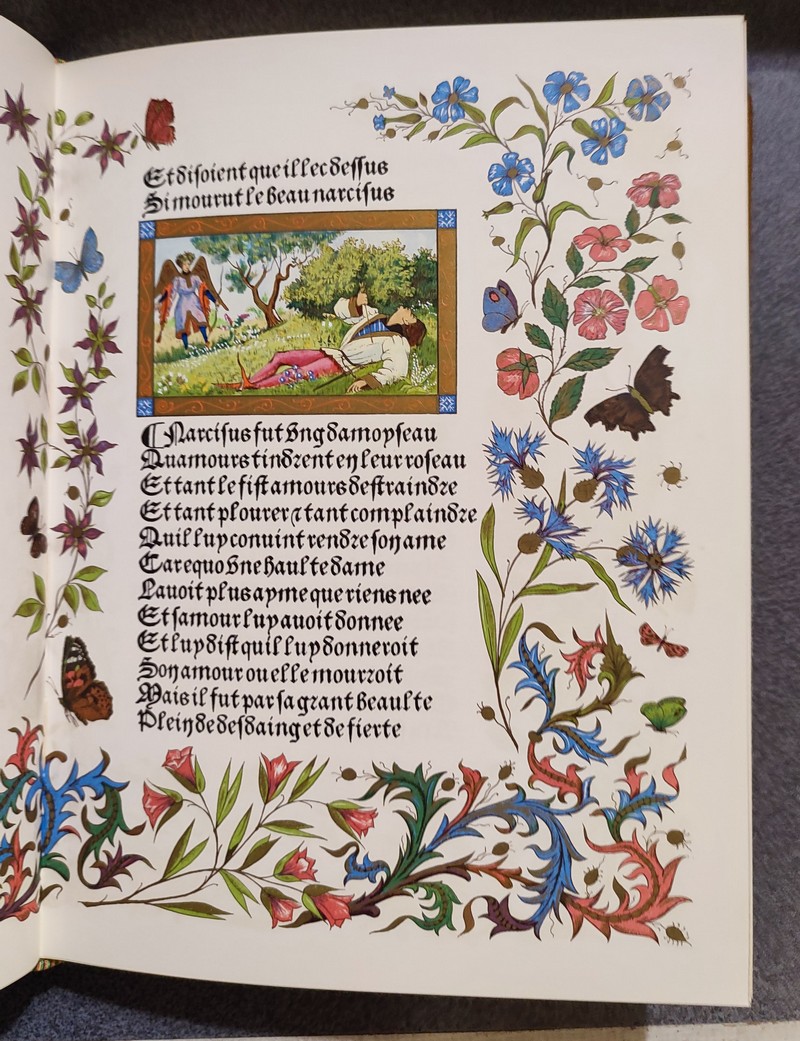 Et disoient que illec dessus
Si mourut le beau narcisus
Narcisus fut vng damoyseau
Quamours tindrent en leur roseau
Et tant le fist amours destraindre
Et tant plourer ⁊ tant complaindre
Quil luy conuint rendre son ame
Car equo vne haulte dame
Lauoit plus ayme que riens nee
Et samour luy auoit donnee
Et luy dist quil luy donneroit
Son amour ou elle mourroit
Mais il fut par sa grant beaulte
Plein de desdaing et de fierte